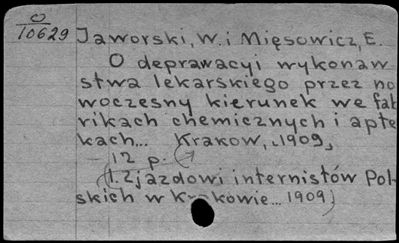 O
10629
Jaworski, W. i Mięsowicz, E.
O deprawacyi wykonaw
stwa lekarskiego przez no
woczesny kierunek we fab
rikach chemicznych i apte
kach... Krakow, 1909,
12 p.
(1. Zjazdowi internistów Pol-
skich w Krakowie... 1909)